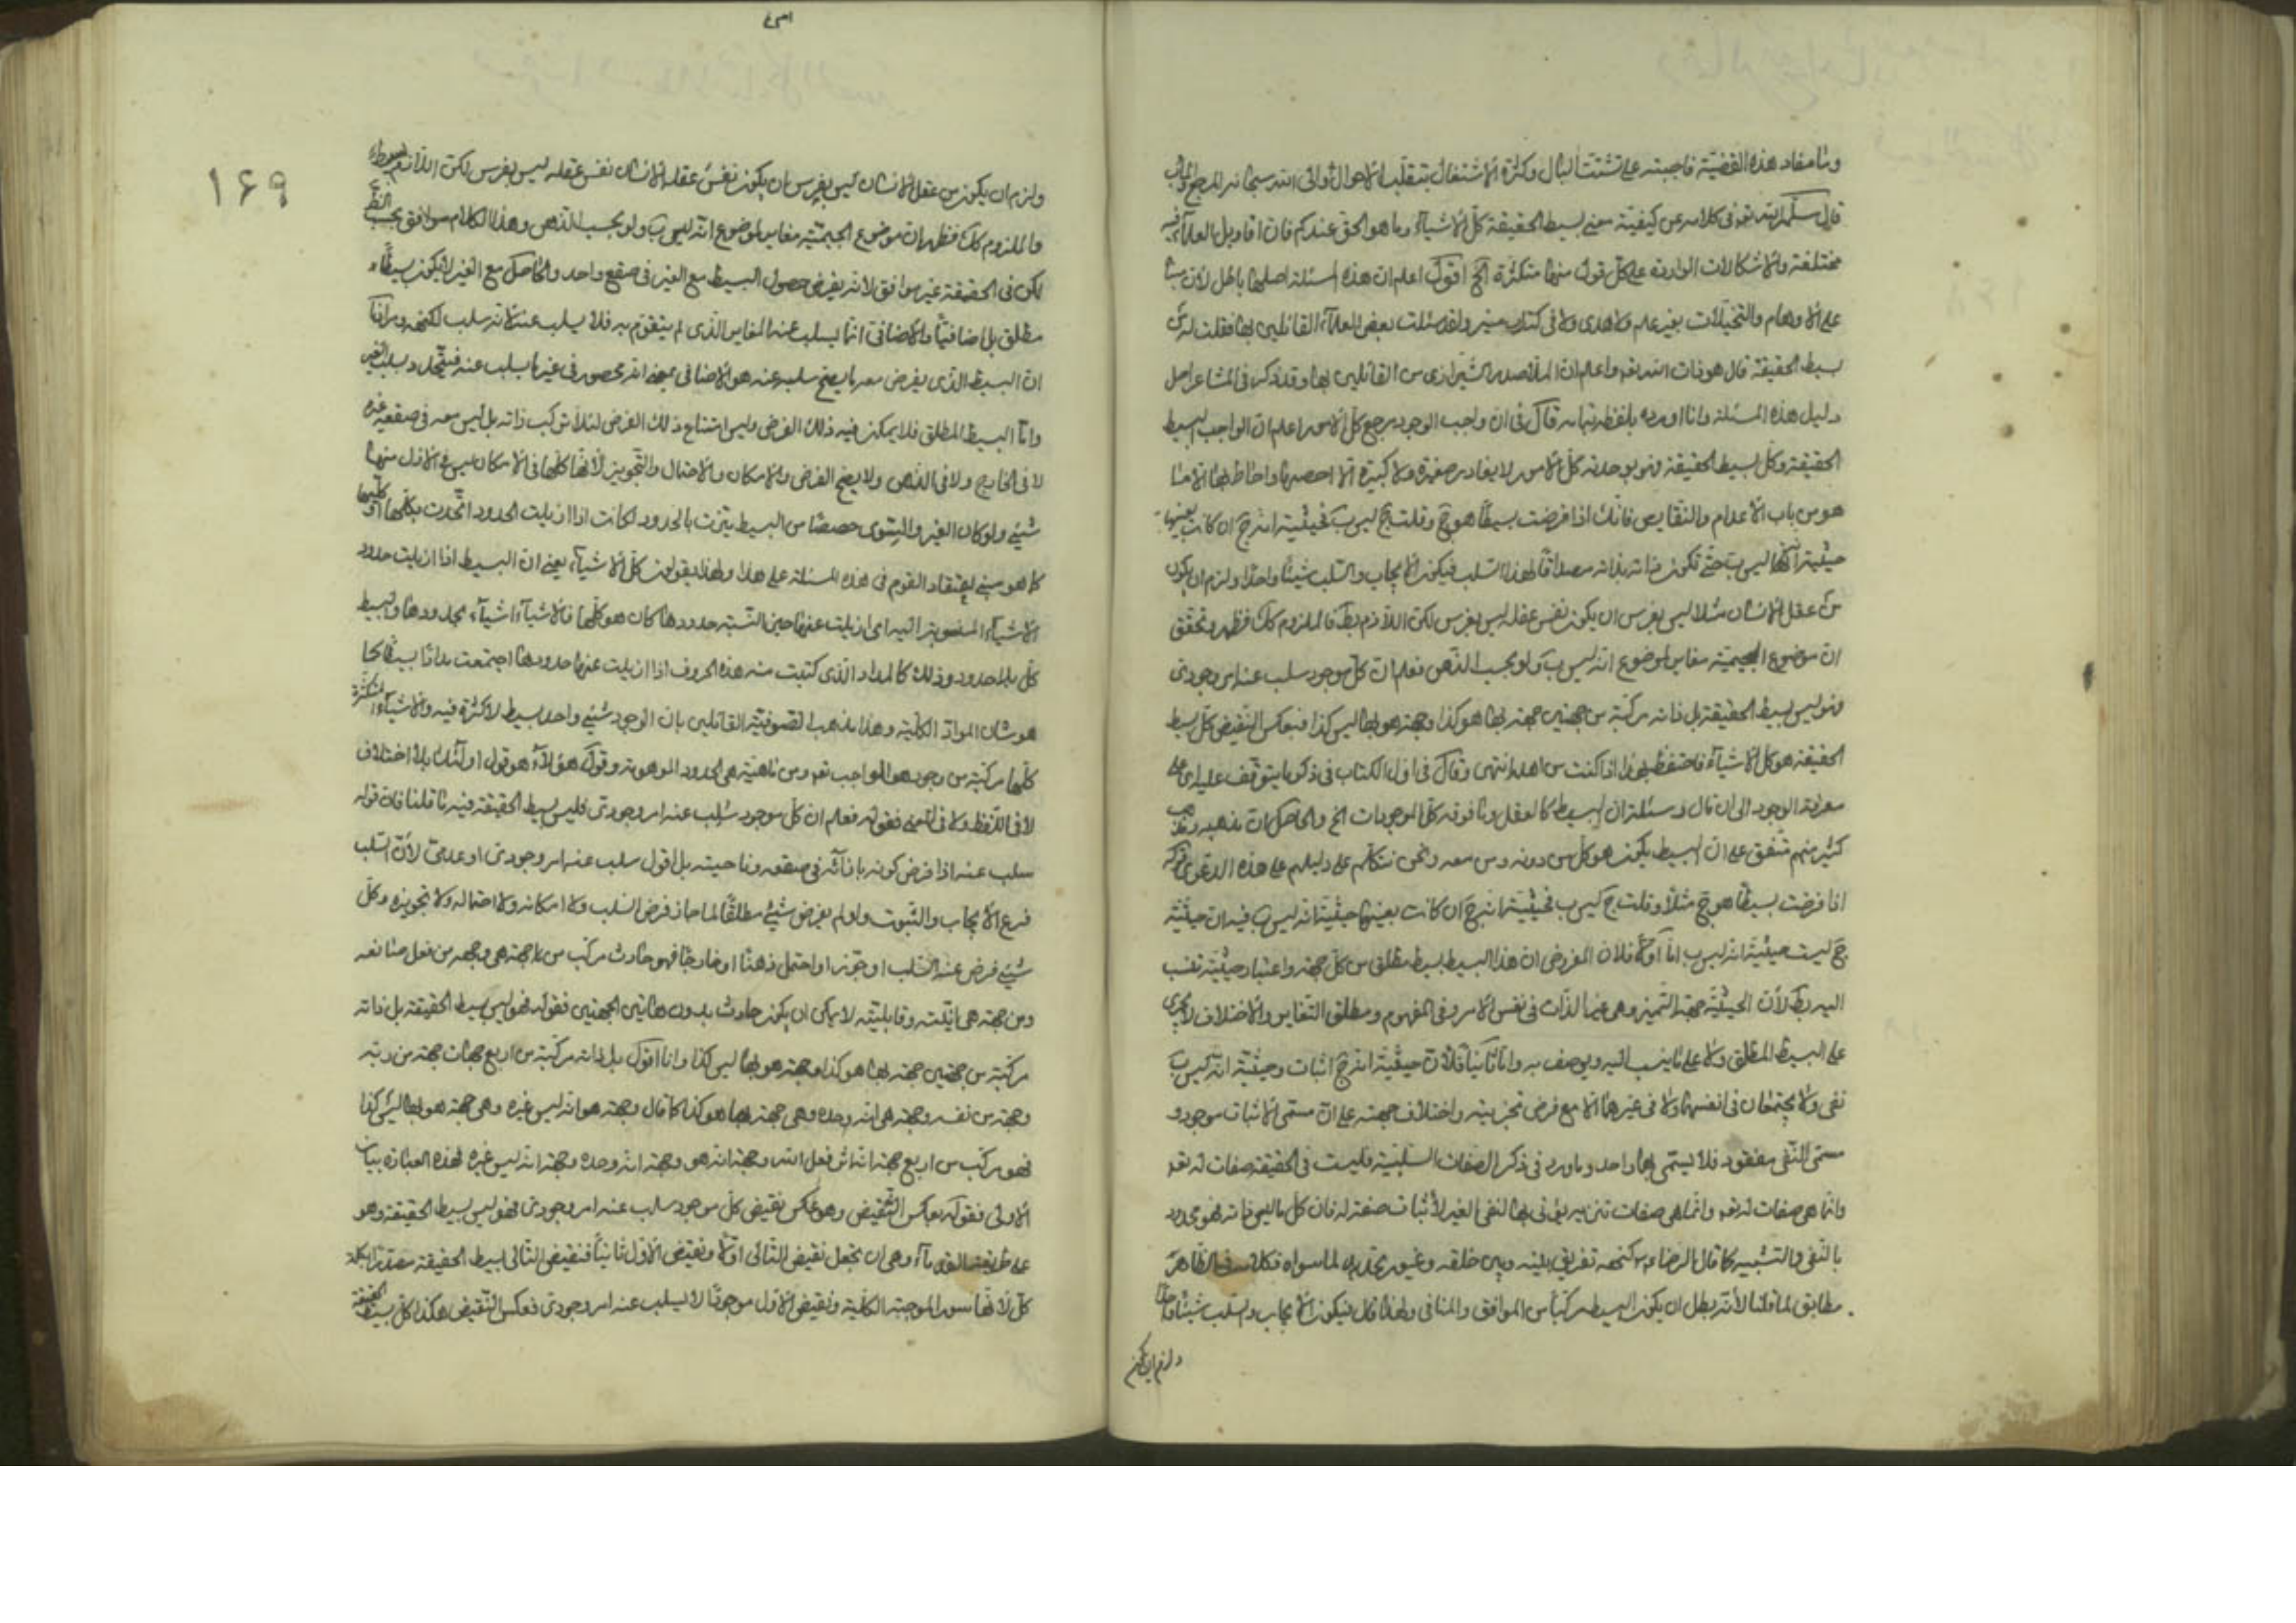 وما مفاد هذه القضيّة فاجبته على تشتّت البال وكثرة الاشتغال بتقلّب الاحوال والى الله سبحانه المرجع والمآب
قال سلّمه الله تعه فى كلامه عن كيفيّة معنى بسيط الحقيقة كلّ الاشياء وما هو الحق عندكم فان اقاويل العلماء فيه
مختلفة والاشكالات الواردة على كلّ قول منها متكثرة الخ اقول اعلم ان هذه المسئلة اصلها باطل لأن مبناها
على الاوهام والتخيّلات بغير علم ولا هدى ولا فى كتاب منير ولقد سئلت بعض العلماء القائلين بها فقلت له
بسيط الحقيقة قال هو ذات الله تعه واعلم ان الملا صدرا الشيرازى من القائلين بها وقد ذكر فى المشاعر اصل
دليل هذه المسئلة وانا اورده بلفظه بتمامه قال فى ان واجب الوجود مرجع كلّ الامور اعلم ان الواجب بسيط
الحقيقة وكل بسيط الحقيقة فهو بوحدته كلّ الامور لا يغادر صغيرة ولا كبيرة الا احصيها واحاط بها الا ما
هو من باب الاعدام والنقايص فانك اذا فرضت بسيطا هو ج وقلت ج ليس ب فحيثيّة انه ج ان كانت بعينها
حيثية انه ليس ب حتى تكون ذاته بذاته مصداقا لهذا السلب فيكون الايجاب والسلب شيئا واحدا ولزم ان يكون
من عقل الانسان مثلا ليس بفرس ان يكون نفس عقله ليس بفرس لكن اللازم بط فالملزوم كك فظهر وتحقق
ان موضوع الجيميّة مغاير لموضوع انه ليس ب ولو بحسب الذهن فعلم ان كلّ موجود سلب عنه امر وجودى
فهو ليس بسيط الحقيقة بل ذاته مركبة من جهتين جهة بها هو كذا وجهة هو بها ليس كذا فبعكس النقيض كلّ بسيط
الحقيقة هو كل الاشياء فاحتفظ بهذا اذا كنت من اهله انتهى وقال فى اول الكتاب فى ذكر ما يتوقف عليه اى على
معرفة الوجود الى ان قال ومسئلة ان البسيط كالعقل وما فوقه كلّ الموجودات الخ والحاصل ان مذهبه ومذهب
كثير منهم متفق على ان البسيط يكون هو كل من دونه ومن معه ونحن نتكلم على دليلهم على هذه الدعوى قوله
اذا فرضت بسيطا هو ج مثلا وقلت ج ليس ب فحيثيّة انه ج ان كانت بعينها حيثيّة انه ليس ب فيه ان حيثيّة
ج ليست حيثيّة انه ليس ب امّا اوّلا فلان المفروض ان هذا البسيط بسيط مطلق من كلّ جهة واعتبار حيثيّة تنسب
اليه بط لأن الحيثيّة جهة التميز وهى غير الذات فى نفس الامر وفى المفهوم ومطلق التغاير والاختلاف لا يجرى
على البسيط المطلق ولا على ما ينسب اليه ويوصف به وامّا ثانيا فلأن حيثيّة انه ج اثبات وحيثيّة انه ليس ب
نفى ولا يجتمعان فى انفسهما ولا فى غيرهما الا مع فرض تجزيته واختلاف جهته على ان مسمّى الاثبات موجود و
مسمّى النّفى مفقود فلا يسمّى بها واحد وما ورد فى ذكر الصفات السلبية فليست فى الحقيقة صفات له تعه
وانّما هى صفات تنزيه يؤتى بها لنفى الغير لا ثبات صفة له فان كل ما ليس ذاته فهو محدود
بالنفى والتشبيه كما قال الرضا ع كنهه تفريق بينه وبين خلقه وغيوره تحديد لما سواه فكلامه فى الظاهر
مطابق لما قلنا لأنه يبطل ان يكون البسيط مركبا من الموافق والمنافى ولهذا قال فيكون الايجاب والسلب شيئا واحدا
ولزم ان يكون
١۶٩
ولزم ان يكون من عقل الانسان ليس بفرس ان يكون نفس عقله الانسان نفس عقله ليس بفرس لكن اللازم بط
فالملزوم كك فظهر ان موضوع الجيميّة مغاير لموضوع انه ليس ب ولو بحسب الذهن وهذا الكلام موافق بحسب النظر
لكن فى الحقيقة غير موافق لانه يفرض حصول البسيط مع الغير فى صقع واحد والحاصل مع الغير لا يكون بسيطا
مطلق بل اضافيّا والاضافى انّما يسلب عنه المغاير الذى لم يتقوّم به فلا يسلب عنه لانه سلب لكنهه ومرادنا
ان البسيط الذى يفرض معه ما يصح سلبه عنه هو الاضافى بمعنى انه محصور فى غير ما يسلب عنه فيتحدد بسلب الغير
وامّا البسيط المطلق فلا يمكن فيه ذلك الفرض وليس امتناع ذلك الفرض لئلا تركب ذاته بل ليس معه فى صقعه غيره
لا فى الخارج ولا فى الذهن ولا يصح الفرض والامكان والاحتمال والتجويز لانها كلها فى الامكان ليس فى الازل منها
شىء ولو كان الغير والسّوى حصصا من البسيط تميّزت بالحدود لكانت اذا ازيلت الحدود اتّحدت بكلّها او كلّيها
كما هو مبنى اعتقاد القوم فى هذه المسئلة على هذا ولهذا يقولون كلّ الاشياء يعنى ان البسيط اذا ازيلت حدود
الاشياء المنسوبة اليه اى ازيلت عنها حين النسبة حدودها كان هو كلّها فالاشياء اشياء بحدودها والبسيط
كلّ بلا حدود وذلك كالمداد الذى كتبت منه هذه الحروف اذا ازيلت عنها حدودها اجتمعت مدادا بسيطا كما
هو شان المواد الكلية وهذا مذهب الصّوفيّة القائلين بان الوجود شىء واحد بسيط لا كثرة فيه والاشياء المتكثرة
كلّها مركبة من وجود هو الواجب تعه ومن ماهيّة هى الحدود الموهومة وقول هؤلاء هو قول اولئك بلا اختلاف
لا فى اللّفظ ولا فى المعنى فقوله فعلم ان كلّ موجود سلب عنه امر وجودى فليس بسيط الحقيقة فيه ما قلنا فان قوله
سلب عنه اذا فرض كونه بازائه فى صقعه وناحيته بل اقول سلب عنه امر وجودى او عدمى لأن السلب
فرع الايجاب والثبوت ولو لم يفرض شىء مطلقا لما جاز فرض السلب ولا امكانه ولا احتماله ولا تجويزه وكل
شىء فرض عنه السلب او جوّز او احتمل ذهنا او خارجا فهو حادث مركب من جهة هى وجهه من فعل صانعه
ومن جهة هى انيّته وقابليّته لا يمكن ان يكون حادث بدون هاتين الجهتين فقوله فهو ليس بسيط الحقيقة بل ذاته
مركبة من جهتين جهة بها هو كذا وجهة هو بها ليس كذا وانا اقول بل ذاته مركبة من اربع جهات جهة من ربّه
وجهة من نفسه وجهة هى انه وحده وهى جهة بها هو كذا كما قال وجهة هو انه ليس غيره وهى جهة هو بها ليس كذا
فهو مركب من اربع جهة انه اثر فعل الله وجهة انه هو وجهة انه وحده وجهة انه ليس غيره فهذه العبارة بيان
الاولى فقوله بعكس النقيض وهو عكس نقيض كلّ موجود سلب عنه امر وجودى فهو ليس بسيط الحقيقة وهو
على طريقة القدماء وهى ان تجعل نقيض الثانى اوّلا ونقيض الاوّل ثانيا فنقيض الثانى بسيط الحقيقة مصدّرا بكلمة
كلّ لانها سور الموجبة الكليّة ونقيض الاوّل موجودا لا يسلب عنه امر وجودى فعكس النقيض هكذا كل بسيط الحقيقة